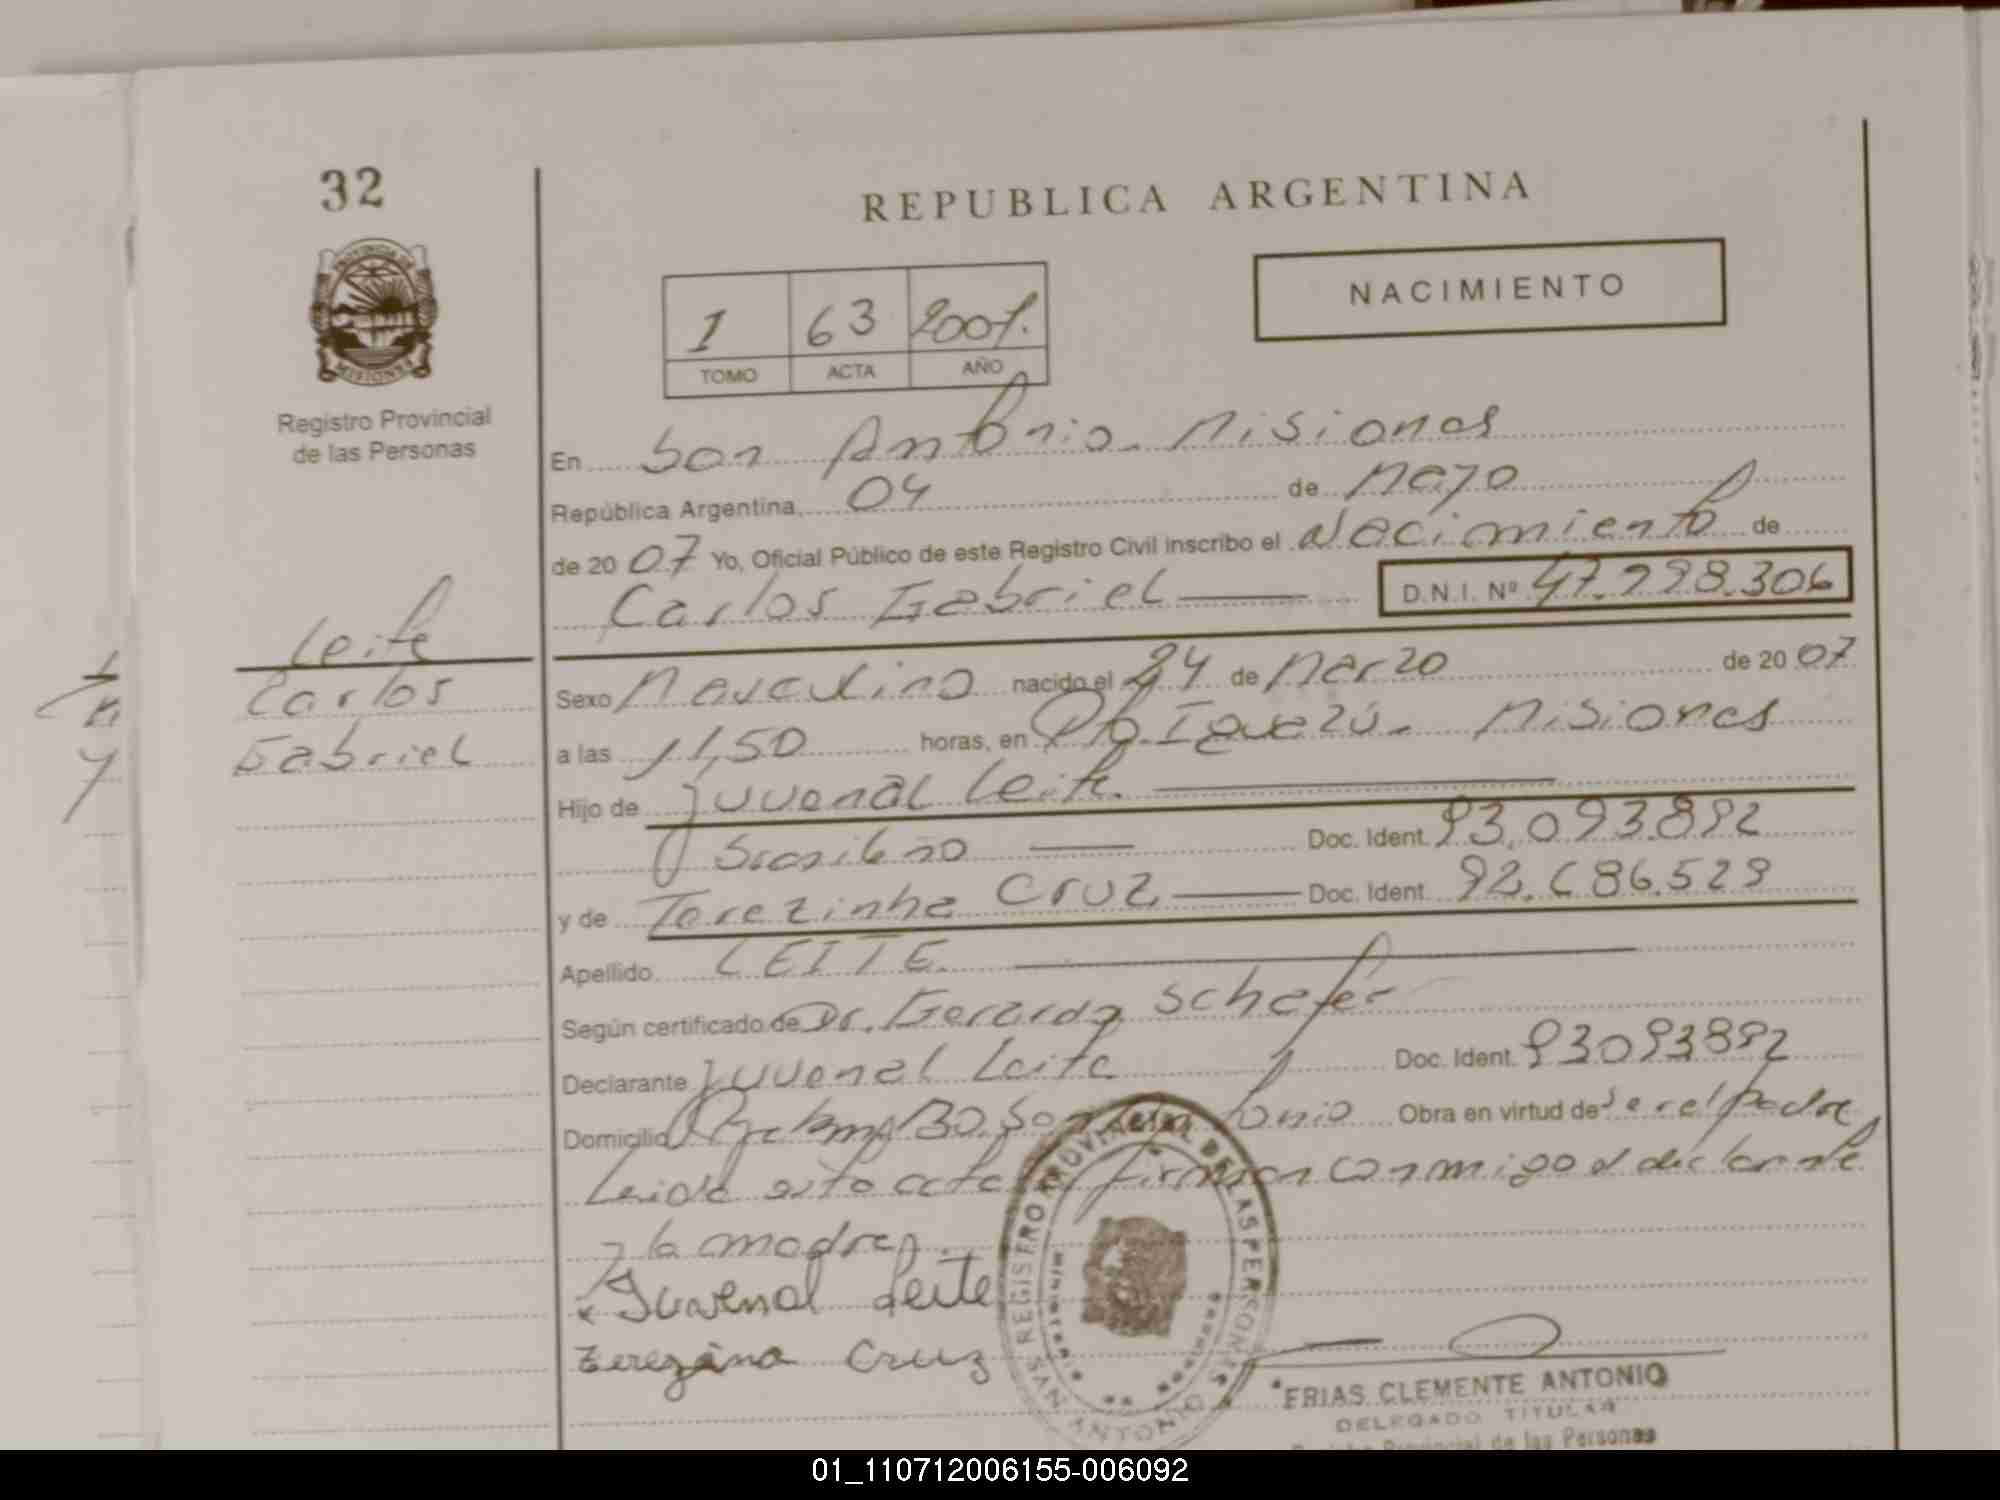 32
REPUBLICA ARGENTINA
PROVINCIA DE MISIONES
Registro Provincial
de las Personas
I 63 2007.
TOMO ACTA AÑO
NACIMIENTO
En San Antonio - Misiones
República Argentina, 04 de Mayo
de 2007 Yo, Oficial Público de este Registro Civil inscribo el Nacimiento de
Carlos Gabriel D.N.I. Nº 47.798.306
Leite
Carlos
Gabriel
Sexo Masculino nacido el 24 de Marzo de 2007
a las 11,50 horas, en Pto. Iguazú - Misiones
Hijo de Juvenal Leite.
Brasileño Doc. Ident. 93.093.892
y de Terezinha Cruz Doc. Ident. 92.686.529
Apellido LEITE
Según certificado de Dr. Gerardo Schafer
Declarante Juvenal Leite Doc. Ident. 93093892
Domicilio 130. San Antonio Obra en virtud de ser el padre
Leida esta acta firman conmigo el declarante
y la madre
Juvenal Leite
Terezina Cruz
REGISTRO PROVINCIAL DE LAS PERSONAS
SAN ANTONIO
FRIAS CLEMENTE ANTONIO
DELEGADO TITULAR
Registro Provincial de las Personas
01_110712006155-006092